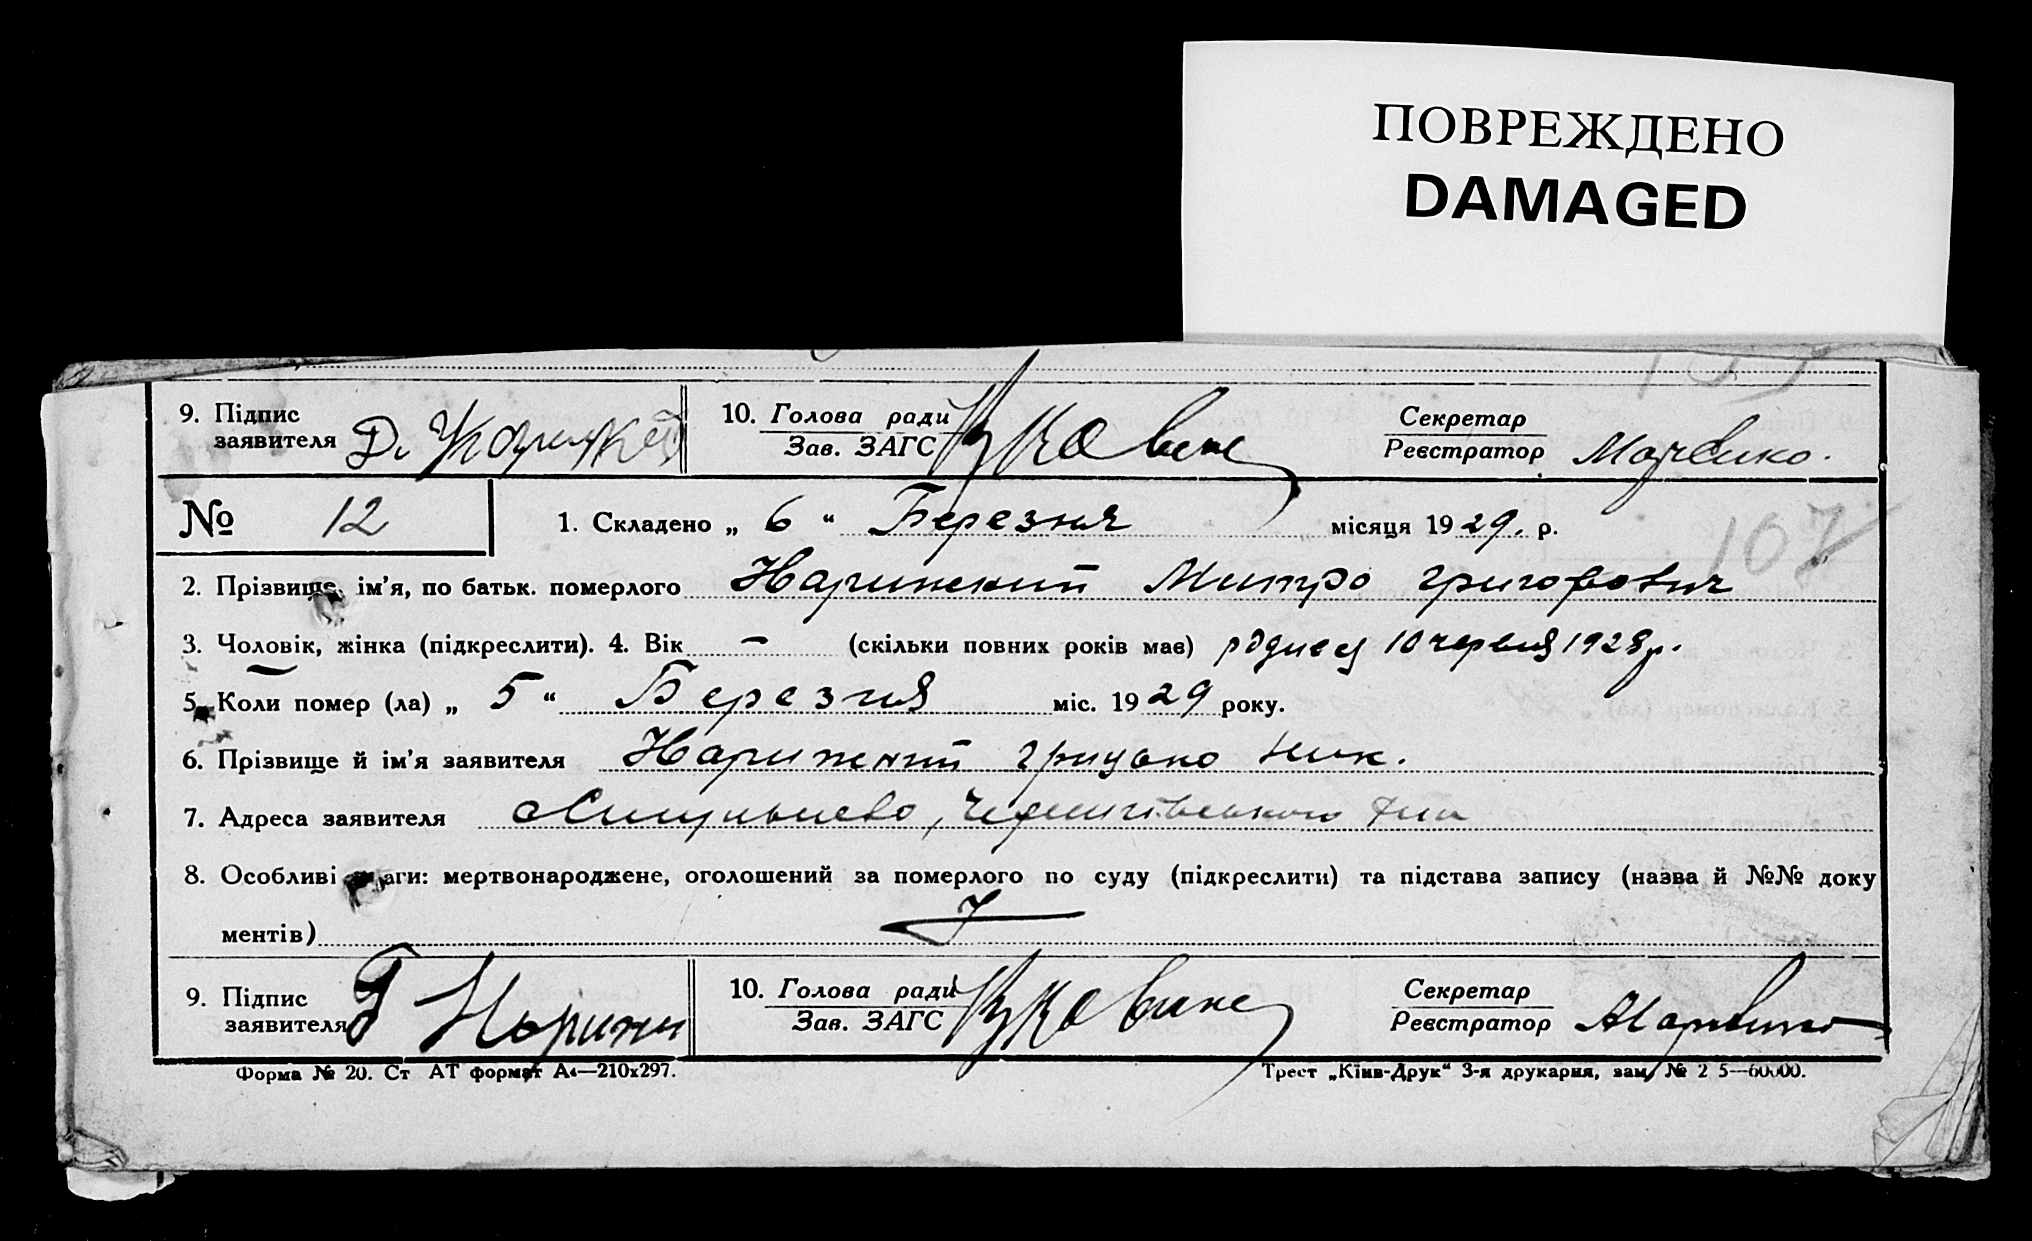 ПОВРЕЖДЕНО
DAMAGED
9. Підпис заявителя Д. 10. Голова ради Зав. ЗАГС Секретар Реєстратор
№ 12 1. Складено „ 6 “ Березня місяця 1929. р.
107
2. Прізвище, ім'я, по батьк. померлого Нарижний Митро Григорович
3. Чоловік, жінка (підкреслити). 4. Вік — (скільки повних років мав) родився 10 червня 1928 р.
5. Коли помер (ла) „ 5 “ Березня міс. 1929 року.
6. Прізвище й ім'я заявителя Нарижний Грицько Ник.
7. Адреса заявителя
8. Особливі уваги: мертвонароджене, оголошений за померлого по суду (підкреслити) та підстава запису (назва й №№ доку
ментів)
9. Підпис заявителя Г Нарижн 10. Голова ради Зав. ЗАГС Секретар Реєстратор
Форма № 20. Ст АТ формат А4—210х297. Трест „Київ-Друк“ 3-я друкарня, зам. № 2 5—60000.